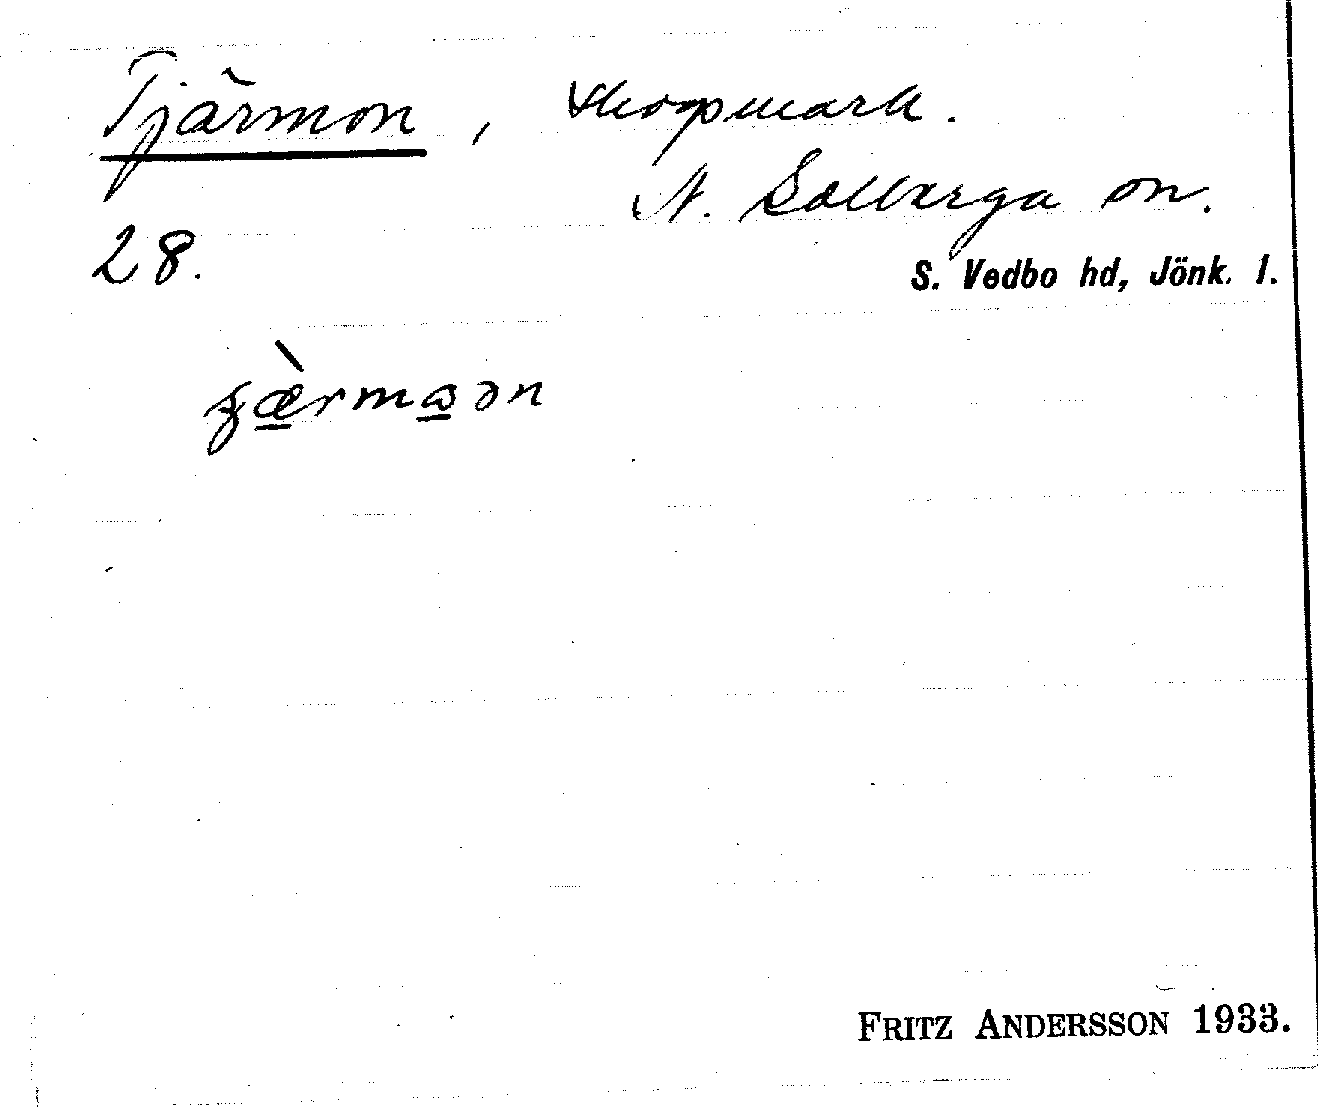 Tjärmon, skogsmark.
N. Solberga sn.
28.
S. Vedbo hd, Jönk. l.
FRITZ ANDERSSON 1933.